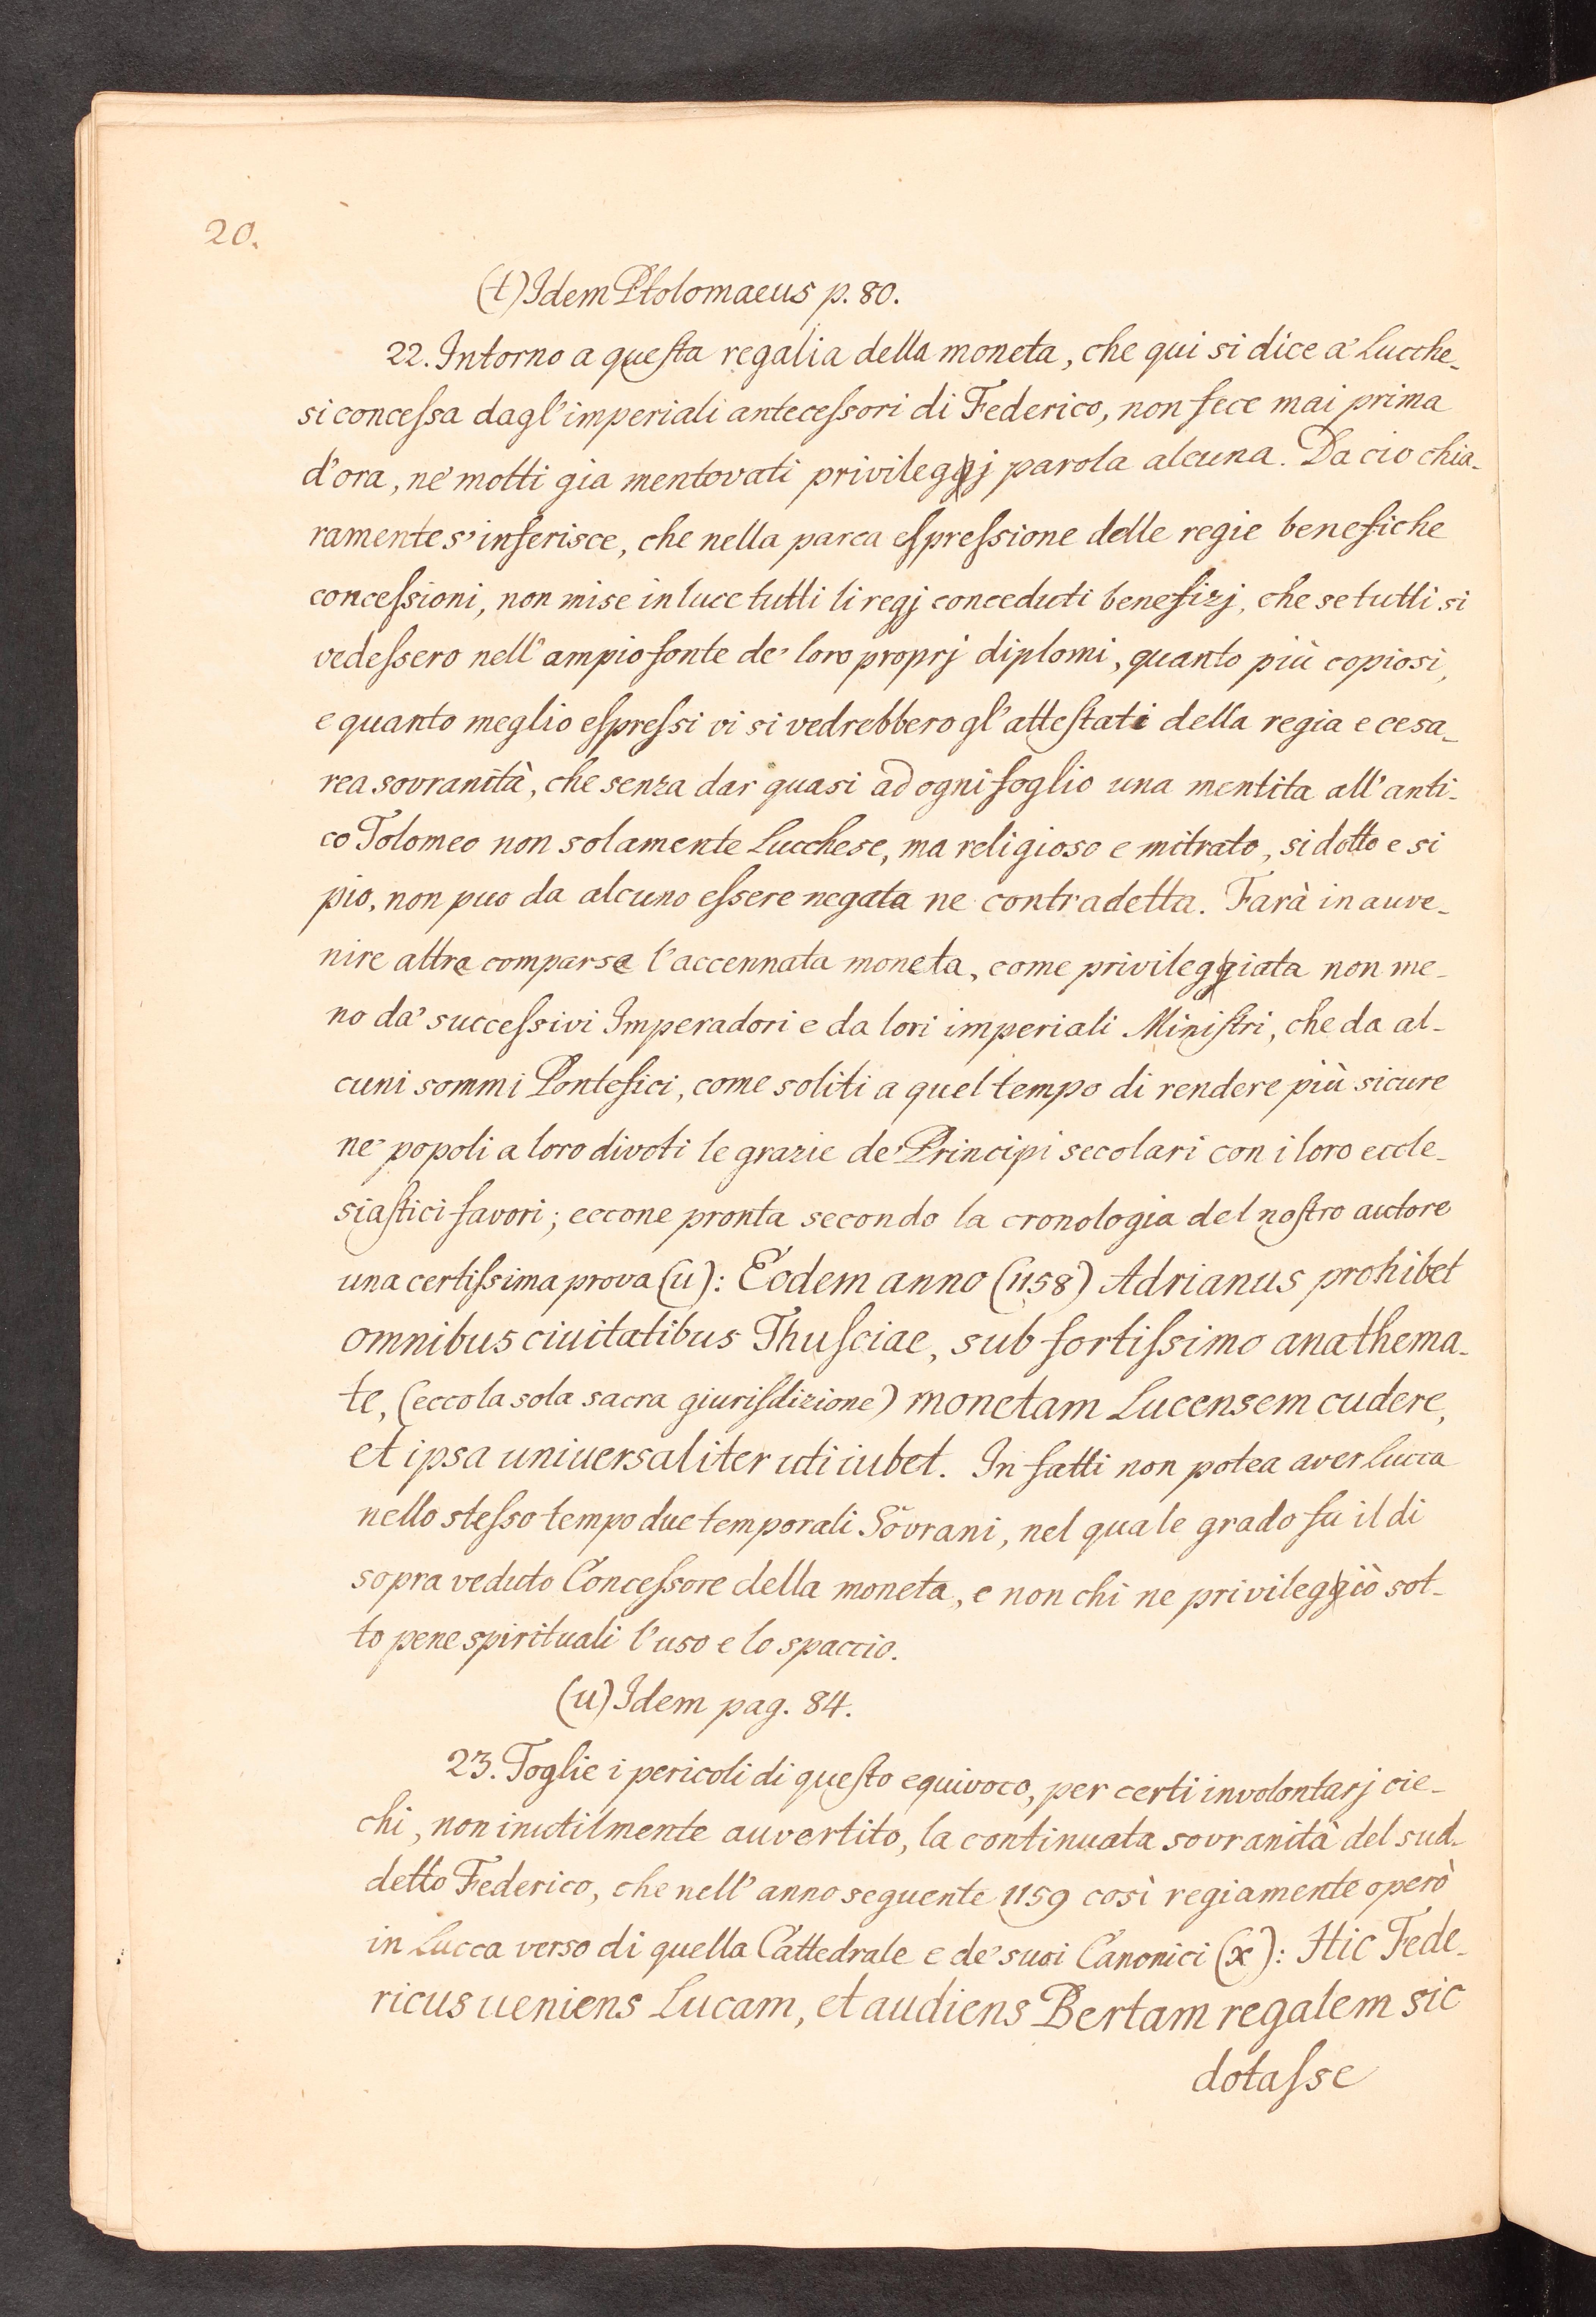 20.
(t) Idem Ptolomaeus p. 80.
22. Intorno a questa regalia della moneta, che qui si dice a' Lucche-
si concessa dagl'imperiali antecessori di Federico, non fece mai prima
d'ora, ne' molti gia mentovati privilegj parola alcuna. Da cio chia-
ramente s'inferisce, che nella parca espressione delle regie benefiche
concessioni, non mise in luce tutti li regj conceduti benefizj, che se tutti si
vedessero nell'ampio fonte de' loro proprj diplomi, quanto più copiosi,
e quanto meglio espressi vi si vedrebbero gl'attestati della regia e cesa-
rea sovranità, che senza dar quasi ad ogni foglio una mentita all'anti-
co Tolomeo non solamente Lucchese, ma religioso e mitrato, si dotto e si
pio, non puo da alcuno essere negata ne contradetta. Farà in auve-
nire altre comparse l'accennata moneta, come privilegiata non me-
no da' successivi Imperadori e da lori imperiali Ministri, che da al-
cuni sommi Pontefici, come soliti a quel tempo di rendere più sicure
ne' popoli a loro divoti le grazie de' Principi secolari con i loro eccle-
siastici favori; eccone pronta secondo la cronologia del nostro autore
una certissima prova (u): Eodem anno (1158) Adrianus prohibet
omnibus ciuitatibus Thusciae, sub fortissimo anathema-
te, (ecco la sola sacra giurisdizione) monetam Lucensem cudere,
et ipsa uniuersaliter uti iubet. In fatti non potea aver Lucca
nello stesso tempo due temporali Sovrani, nel quale grado fu il di
sopra veduto Concessore della moneta, e non chi ne privilegiò sot-
to pene spirituali l'uso e lo spaccio.
(u) Idem pag. 84.
23. Toglie i pericoli di questo equivoco, per certi involontarj cie-
chi, non inutilmente auvertito, la continuata sovranità del sud-
detto Federico, che nell'anno seguente 1159 così regiamente operò
in Lucca verso di quella Cattedrale e de' suoi Canonici (x): Hic Fede-
ricus ueniens Lucam, et audiens Bertam regalem sic
dotasse